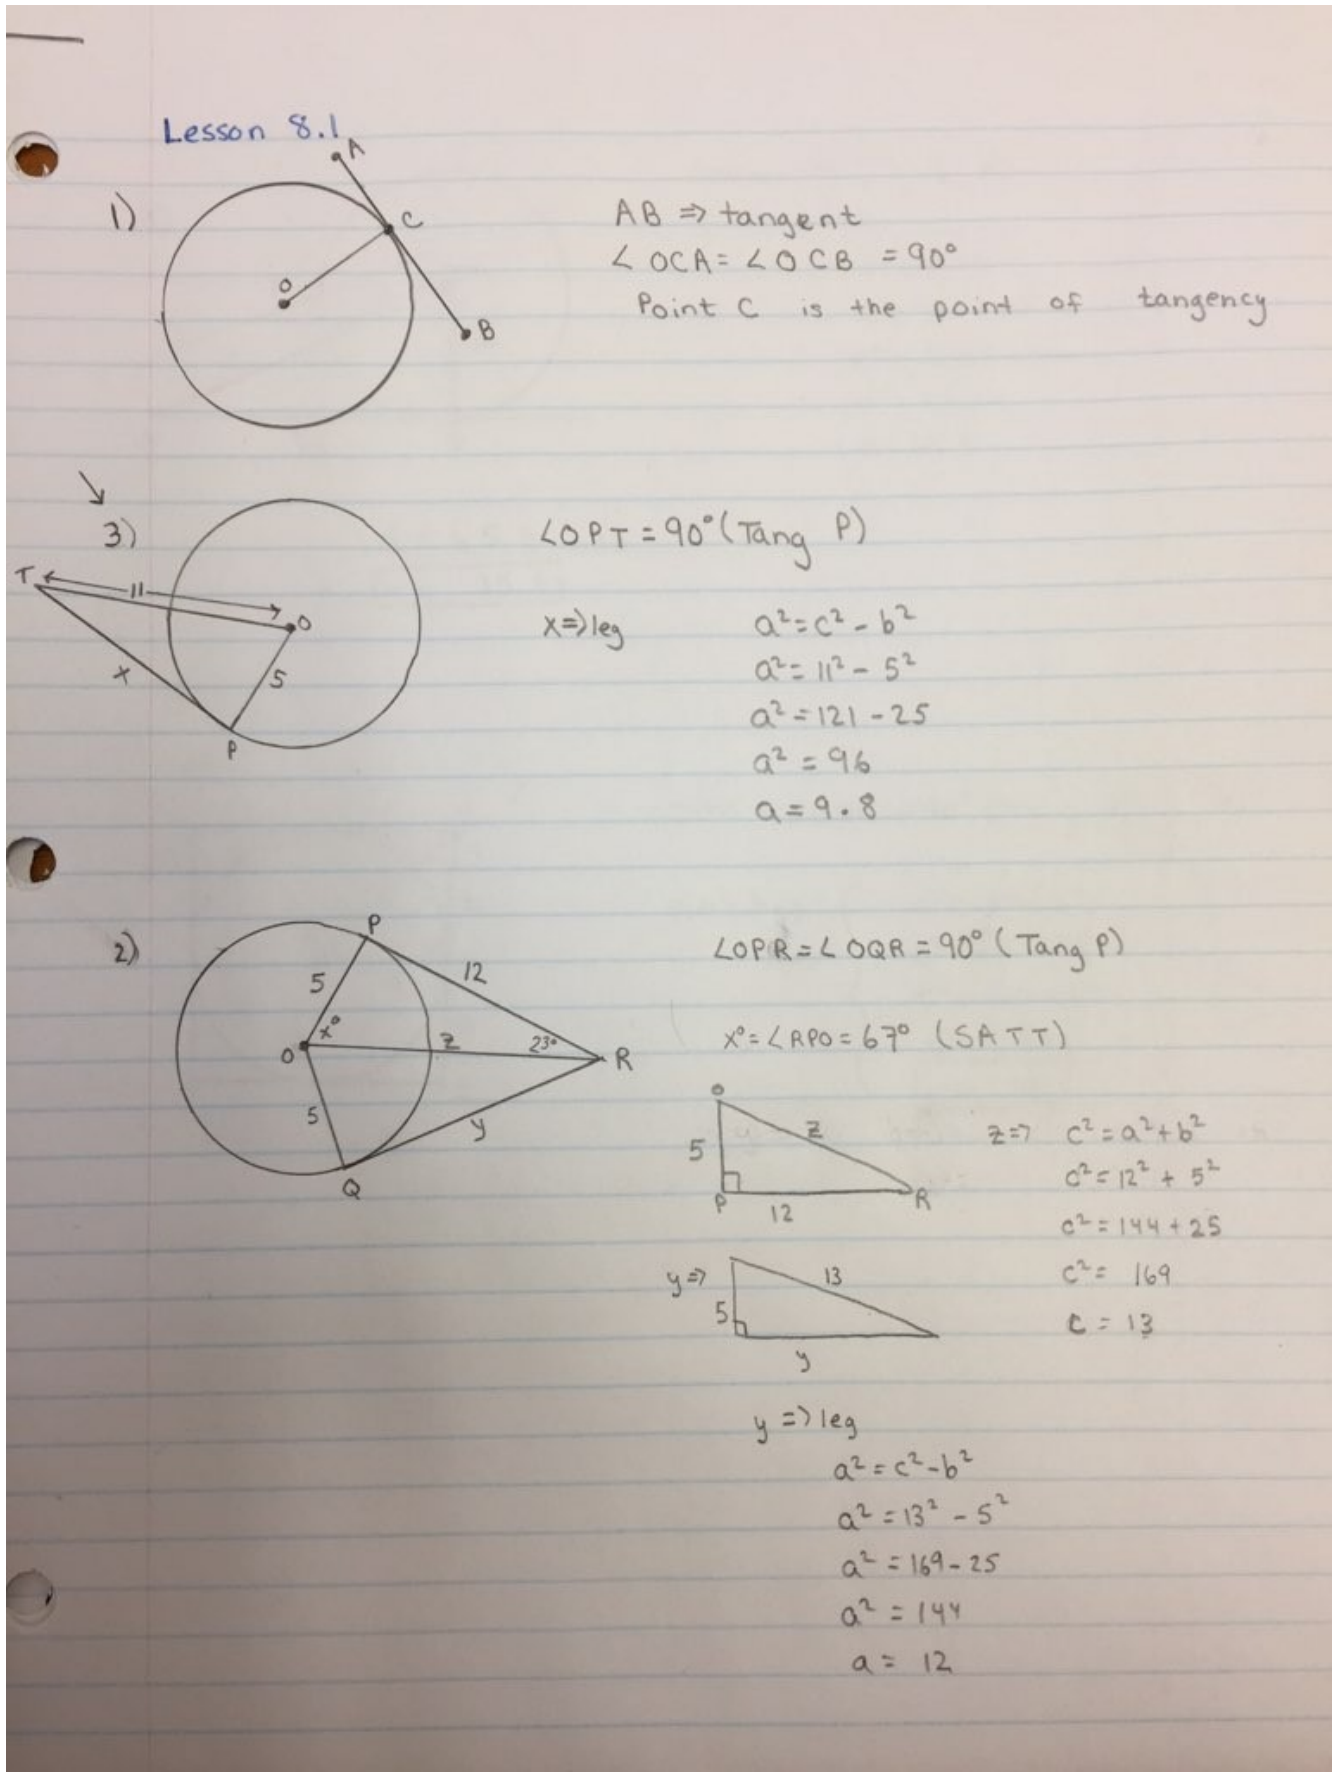 Lesson 8.1
1)
A
C
O
B
AB ⇒ tangent
∠OCA = ∠OCB = 90°
Point C is the point of tangency
↘
3)
T
11
O
x
5
P
∠OPT = 90° (Tang P)
x ⇒ leg
a² = c² - b²
a² = 11² - 5²
a² = 121 - 25
a² = 96
a = 9.8
2)
P
5
12
x°
O
z
23°
R
5
y
Q
∠OPR = ∠OQR = 90° (Tang P)
x° = ∠RPO = 67° (SATT)
O
5
z
P
12
R
z ⇒ c² = a² + b²
c² = 12² + 5²
c² = 144 + 25
c² = 169
c = 13
y ⇒
5
13
y
y ⇒ leg
a² = c² - b²
a² = 13² - 5²
a² = 169 - 25
a² = 144
a = 12